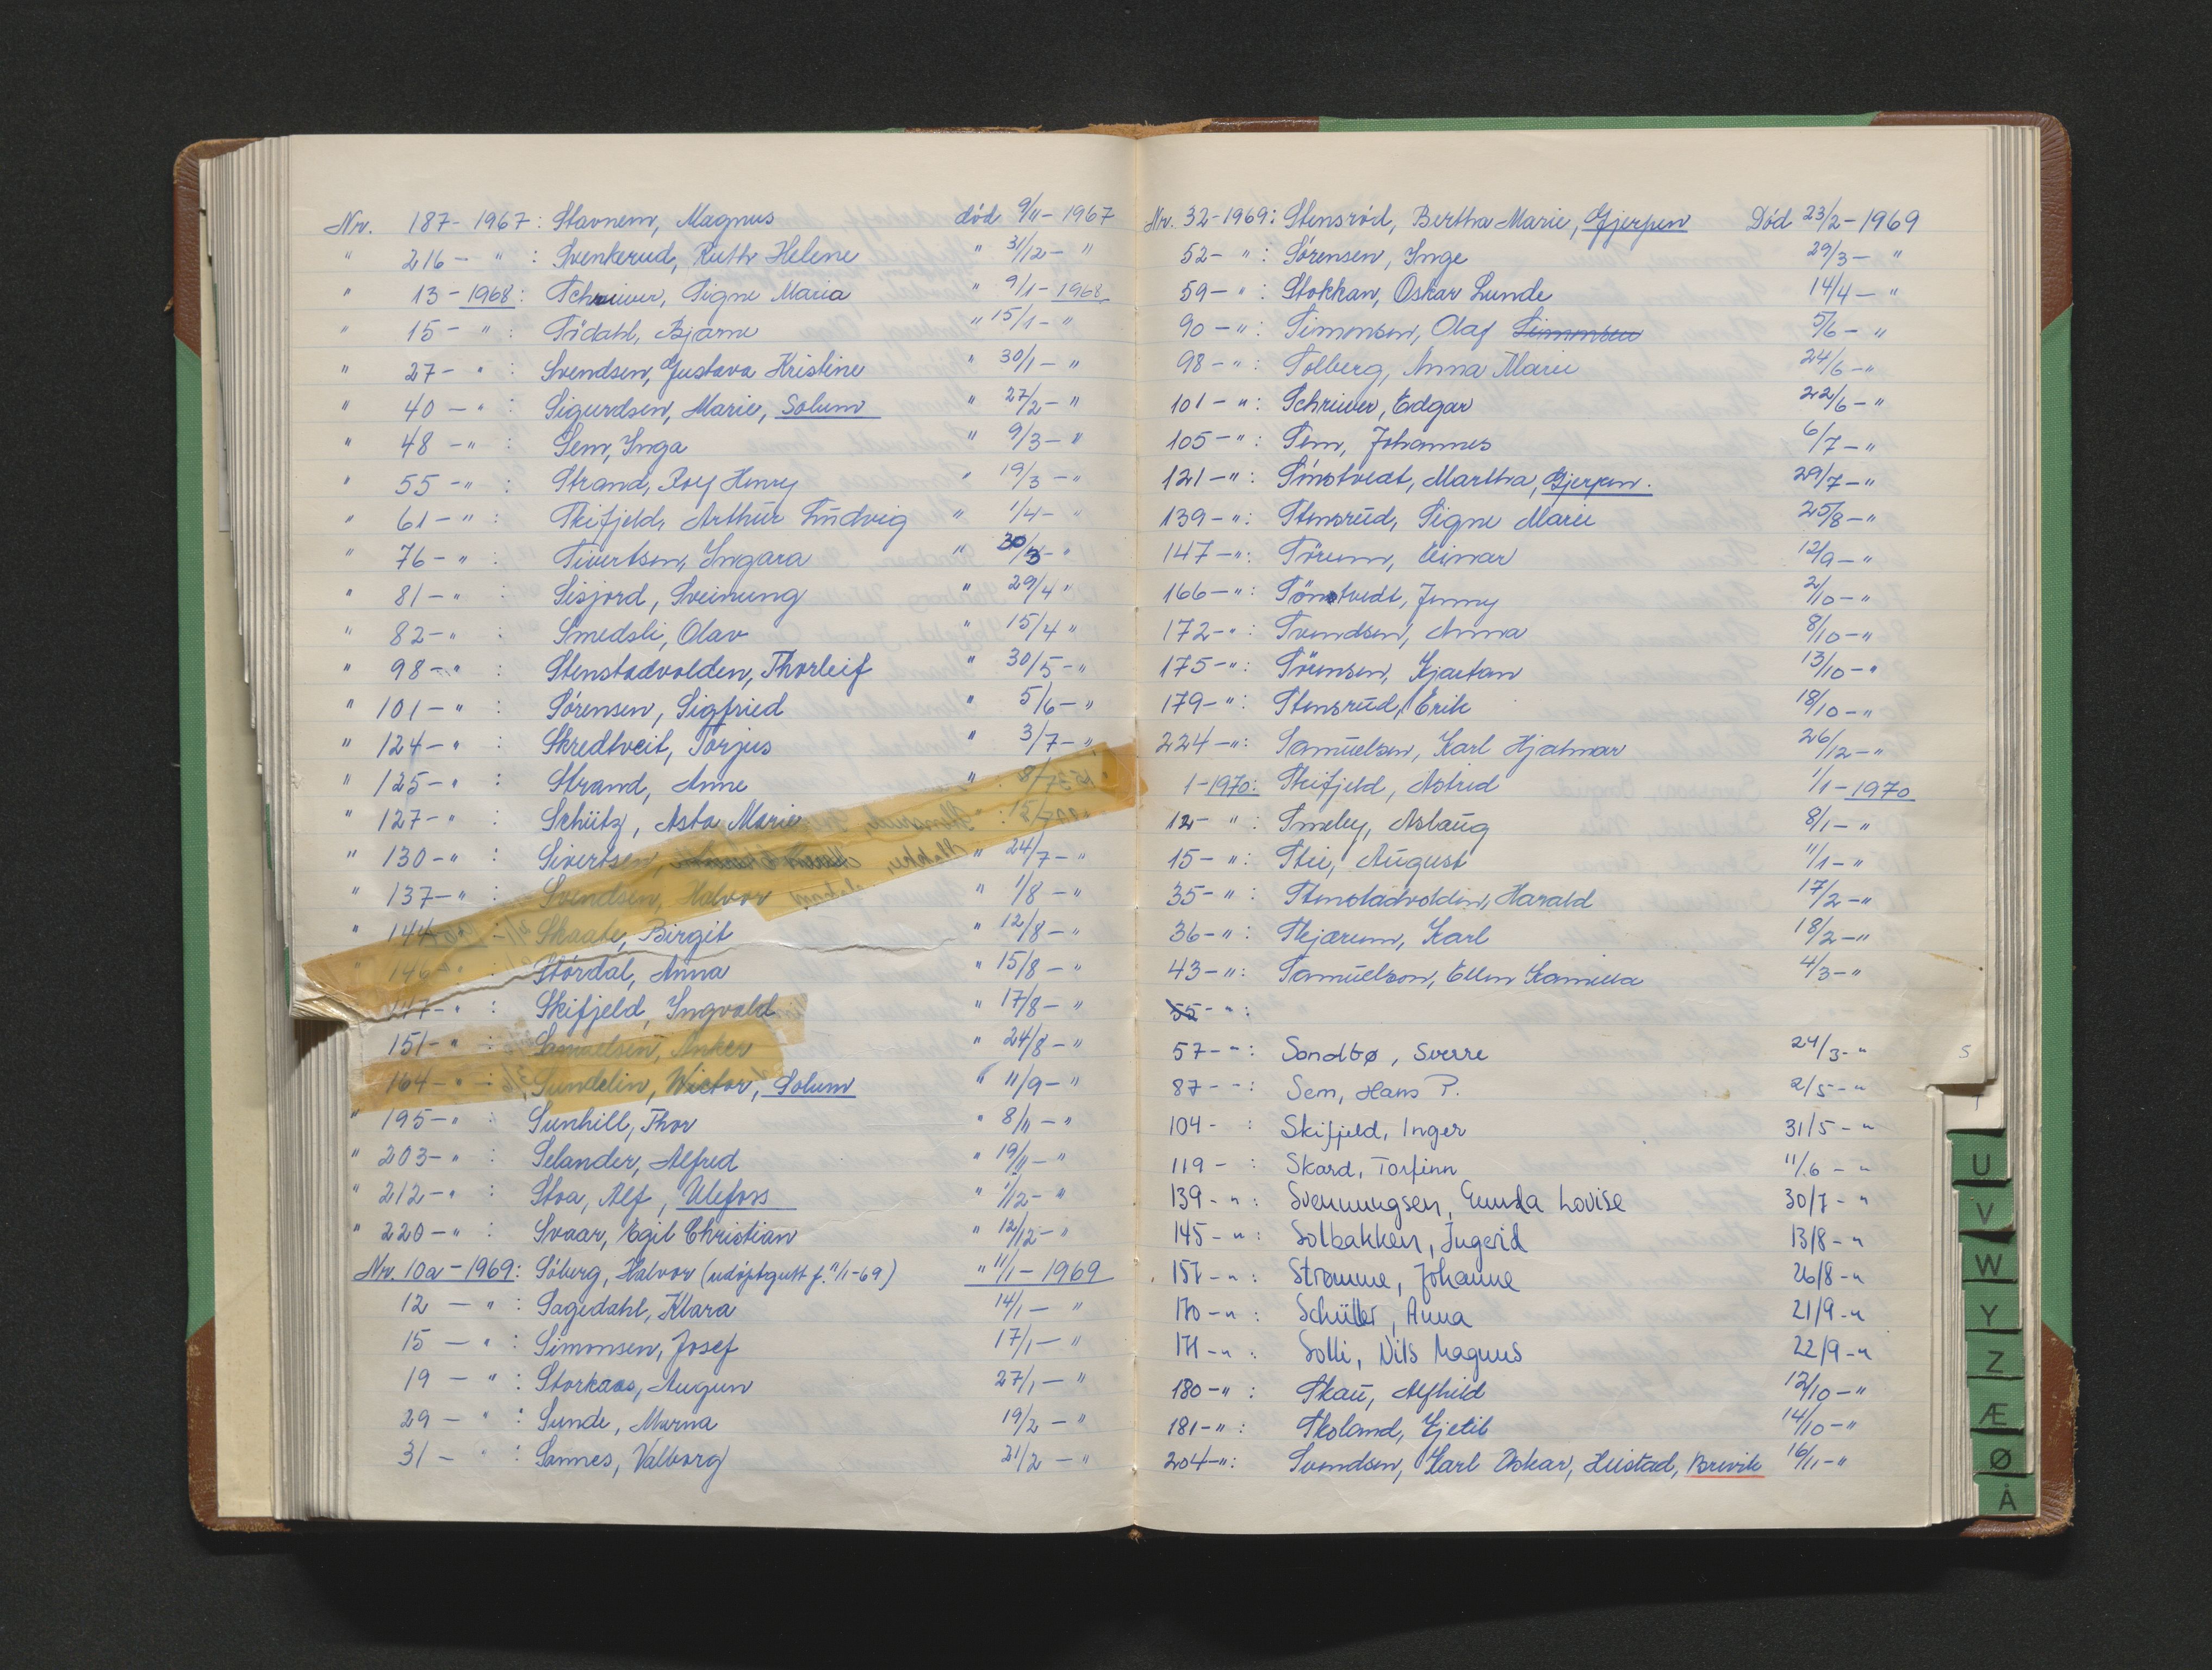 Nr. 187-1967: Stavnem, Magnus død 9/11-1967
" 216 - " : Svenkerud, Ruth Helene " 31/12 - "
" 13-1968: Schriwer, Signe Maria " 9/1-1968
" 15- " : Södahl, Bjarne " 15/1 - "
" 27- " : Svendsen, Gustava Kristine " 30/1 - "
" 40 - " : Sigurdsen, Marie, Solum " 27/2 - "
" 48 - " : Sem, Inga " 9/3 - "
" 55 - " : Strand, Rolf Henry " 19/3 - "
" 61 - " : Skifjeld, Arthur Ludvig " 1/4 - "
" 76 - " : Sivertsen, Ingara " 30/3 - "
" 81 - " : Sisjord, Sveinung " 29/4 "
" 82 - " : Smedsli, Olav " 15/4 "
" 98 - " : Stenstadvolden, Thorleif " 30/5 - "
" 101 - " : Sørensen, Sigfried " 5/6 - "
" 124 - " : Skredtveit, Torjus " 3/7 - "
" 125 - " : Strand, Anne "
" 127 - " : Schütz, Asta Marie
" 130 - " : Sivertsen, " 24/7 - "
" 137 - " : Svendsen, Halvor " 1/8 - "
" 144 - Skaate, Birgit " 12/8 - "
" 146 - " : Stórdal, Anna " 15/8 - "
147 - " : Skifjeld, Ingvald " 17/8 - "
151 - " : Samuelsen, Anker " 24/8 - "
164 - " : Sundelin, Wictor, Solum " 11/9 - "
" 195 - " : Sunhill, Thor " 8/11 - "
" 203 - " : Selander, Alfred " 19/11 - "
" 212 - " : Stoa, Alf, Ulefoss " 1/12 - "
" 220 - " : Svaar, Egil Christian " 12/12 - "
Nr. 10a - 1969: Söberg, Halvor (udöptgutt f. 11/1-69) " 11/1 - 1969
12 - " : Sagedahl, Klara 14/1 - "
15 - " : Simonsen, Josef 17/1 - "
19 - " : Storkaas, Augun 27/1 - "
29 - " : Sunde, Murna 19/2 - "
31 - " : Sannes, Valborg 21/2 - "
Nr. 32-1969: Stensrød, Bertha Marie, Gjerpen Död 23/2-1969
52 - " : Sørensen, Inge 29/3 - "
59 - " : Stokkan, Oskar Lunde 14/4 - "
90 - " : Simonsen, Olaf Simonsen 5/6 - "
98 - " : Solberg, Anna Marie 24/6 - "
101 - " : Schriwer, Edgar 22/6 - "
105 - " : Sem, Johannes 6/7 - "
121 - " : Sönstvedt, Martha, Gjerpen. 29/7 - "
139 - " : Stensrud, Signe Marie 25/8 - "
147 - " : Sörum, Einar 12/9 - "
166 - " : Sönstvedt, Jenny 2/10 - "
172 - " : Svendsen, Anna 8/10 - "
175 - " : Sörensen, Kjartan 13/10 - "
179 - " : Stensrud, Erik 18/10 - "
224 - " : Samuelsen, Karl Hjalmar 26/12 - "
1-1970: Skifjeld, Astrid 1/1-1970
12 - " : Smeby, Aslaug 8/1 - "
15 - " : Stei, August 11/1 - "
35 - " : Stenstadvolden, Harald 17/2 - "
36 - " : Skjærum, Karl 18/2 - "
43 - " : Samuelson, Ellen Kamilla 4/3 - "
55 - " :
57 - " : Sondbø, Sverre 24/3 - "
S
87 - - : Sem, Hans P. 2/5 - "
104 - : Skifjeld, Inger 31/5 - "
119 - : Skard, Torfinn 11/6 - "
139 - " : Svenningsen, Gunda Lovise 30/7 - "
145 - " : Solbakken, Ingerid 13/8 - "
157 - " : Strømme, Johanne 26/8 - "
170 - " : Schüller, Anna 21/9 - "
171 - " : Solli, Nils Magnus 22/9 - "
180 - " : Skau, Alfhild 12/10 - "
181 - " : Skoland, Kjetil 14/10 - "
204 - " : Svendsen, Karl Oskar, Heistad, Brevik 16/11 - "
U
V
W
Y
Z
Æ
Ø
Å